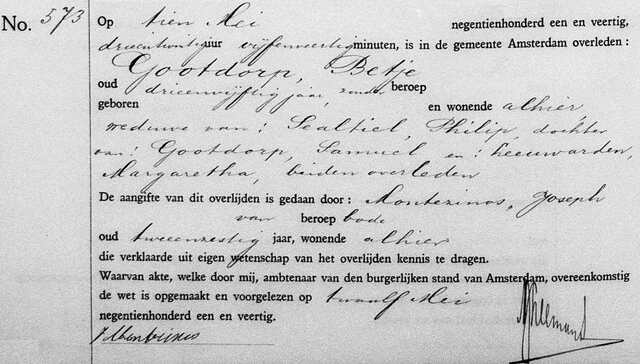 No. 573
Op tien Mei negentienhonderd een en veertig,
drieentwintig uur vijfenveertig minuten, is in de gemeente Amsterdam overleden :
Gootdorp, Betje
oud drieenvijftig jaar, zonder beroep
geboren en wonende alhier
weduwe van: Sealtiel, Philip, dochter
van: Gootdorp, Samuel en: Leeuwarden,
Margaretha, beiden overleden
De aangifte van dit overlijden is gedaan door : Montezinos, Joseph
van beroep bode
oud tweeenzestig jaar, wonende alhier
die verklaarde uit eigen wetenschap van het overlijden kennis te dragen.
Waarvan akte, welke door mij, ambtenaar van den burgerlijken stand van Amsterdam, overeenkomstig
de wet is opgemaakt en voorgelezen op twaalf Mei
negentienhonderd een en veertig.
J Montezinos